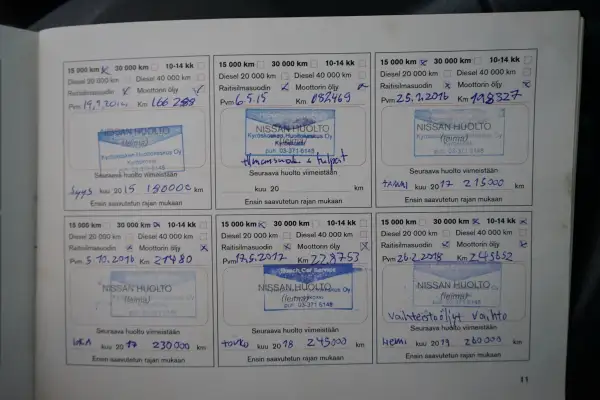 15 000 km x 30 000 km 10-14 kk
Diesel 20 000 km Diesel 40 000 km
Raitisilmasuodin x Moottorin öljy x
Pvm 19.9.2014 Km 166 288
NISSAN HUOLTO
(leima)
Kyröskosken Huoltokeskus Oy
Kyröskoski
puh. 03-371 6148
Seuraava huolto viimeistään
syys kuu 2015 180000 km
Ensin saavutetun rajan mukaan
15 000 km 30 000 km 10-14 kk
Diesel 20 000 km Diesel 40 000 km
Raitisilmasuodin Moottorin öljy
Pvm 6.5.15 Km 182469
NISSAN HUOLTO
(leima)
Kyröskosken Huoltokeskus Oy
Kyröskoski
puh. 03-371 6148
ilmansuod. + tulpat
Seuraava huolto viimeistään
kuu 20 km
Ensin saavutetun rajan mukaan
15 000 km x 30 000 km 10-14 kk
Diesel 20 000 km Diesel 40 000 km
Raitisilmasuodin x Moottorin öljy x
Pvm 25.1.2016 Km 198327
NISSAN HUOLTO
(leima)
puh. 03-371 6148
Seuraava huolto viimeistään
tammi kuu 2017 215000 km
Ensin saavutetun rajan mukaan
15 000 km 30 000 km x 10-14 kk
Diesel 20 000 km Diesel 40 000 km
Raitisilmasuodin x Moottorin öljy x
Pvm 5.10.2016 Km
NISSAN HUOLTO
(leima)
Seuraava huolto viimeistään
loka kuu 2017 230000 km
Ensin saavutetun rajan mukaan
15 000 km x 30 000 km 10-14 kk
Diesel 20 000 km Diesel 40 000 km
Raitisilmasuodin x Moottorin öljy x
Pvm 17.5.2017 Km 228753
Bosch Car Service
NISSAN HUOLTO
(leima)
puh. 03-371 6148
Seuraava huolto viimeistään
touko kuu 2018 245000 km
Ensin saavutetun rajan mukaan
15 000 km 30 000 km x 10-14 kk x
Diesel 20 000 km Diesel 40 000 km
Raitisilmasuodin x Moottorin öljy x
Pvm 26.2.2018 Km 243652
NISSAN HUOLTO
(leima)
Vaihteistoöljyt vaihto
Seuraava huolto viimeistään
Helmi kuu 2019 260000 km
Ensin saavutetun rajan mukaan
11